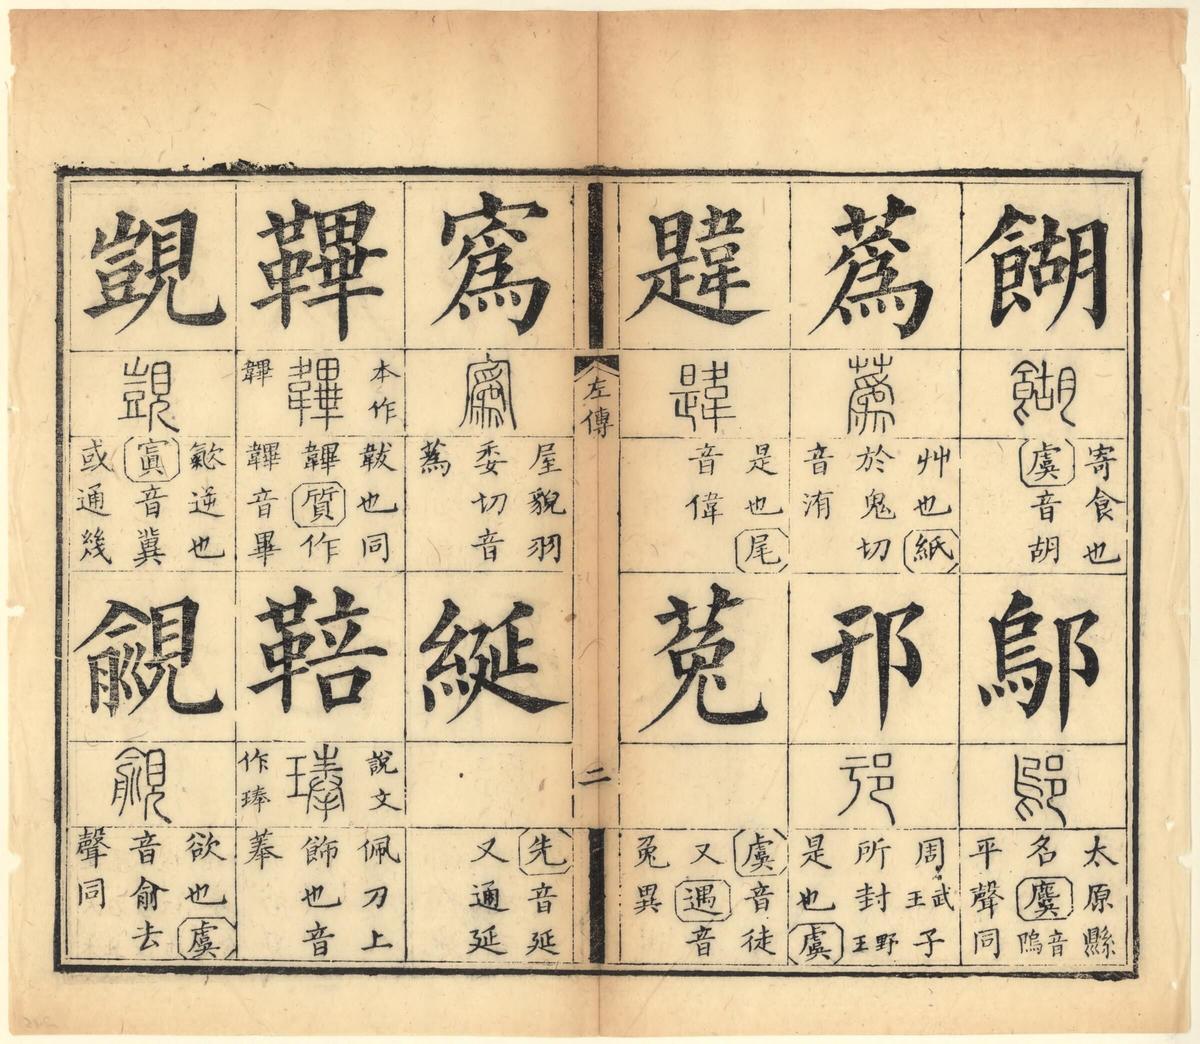 餬
餬
寄食也
虞音胡
鄔
鄔
太原縣
名麌音隖
平聲同
蒍
蒍
艸也紙
於鬼切
音洧
邘
邘
周武王子
所封野王
是也虞
韙
韙
是也尾
音偉
菟
虞音徒
又遇音
兔異
左傳
二
寪
寪
屋貌羽
委切音
蒍
綖
先音延
又通延
鞸
本作
韠
韠
韍也同
韠質作
韠音畢
鞛
說文
琫
作琫
佩刀上
飾也音
菶
覬
覬
逆也
寘音冀
或通幾
覦
覦
欲也虞
音俞去
聲同